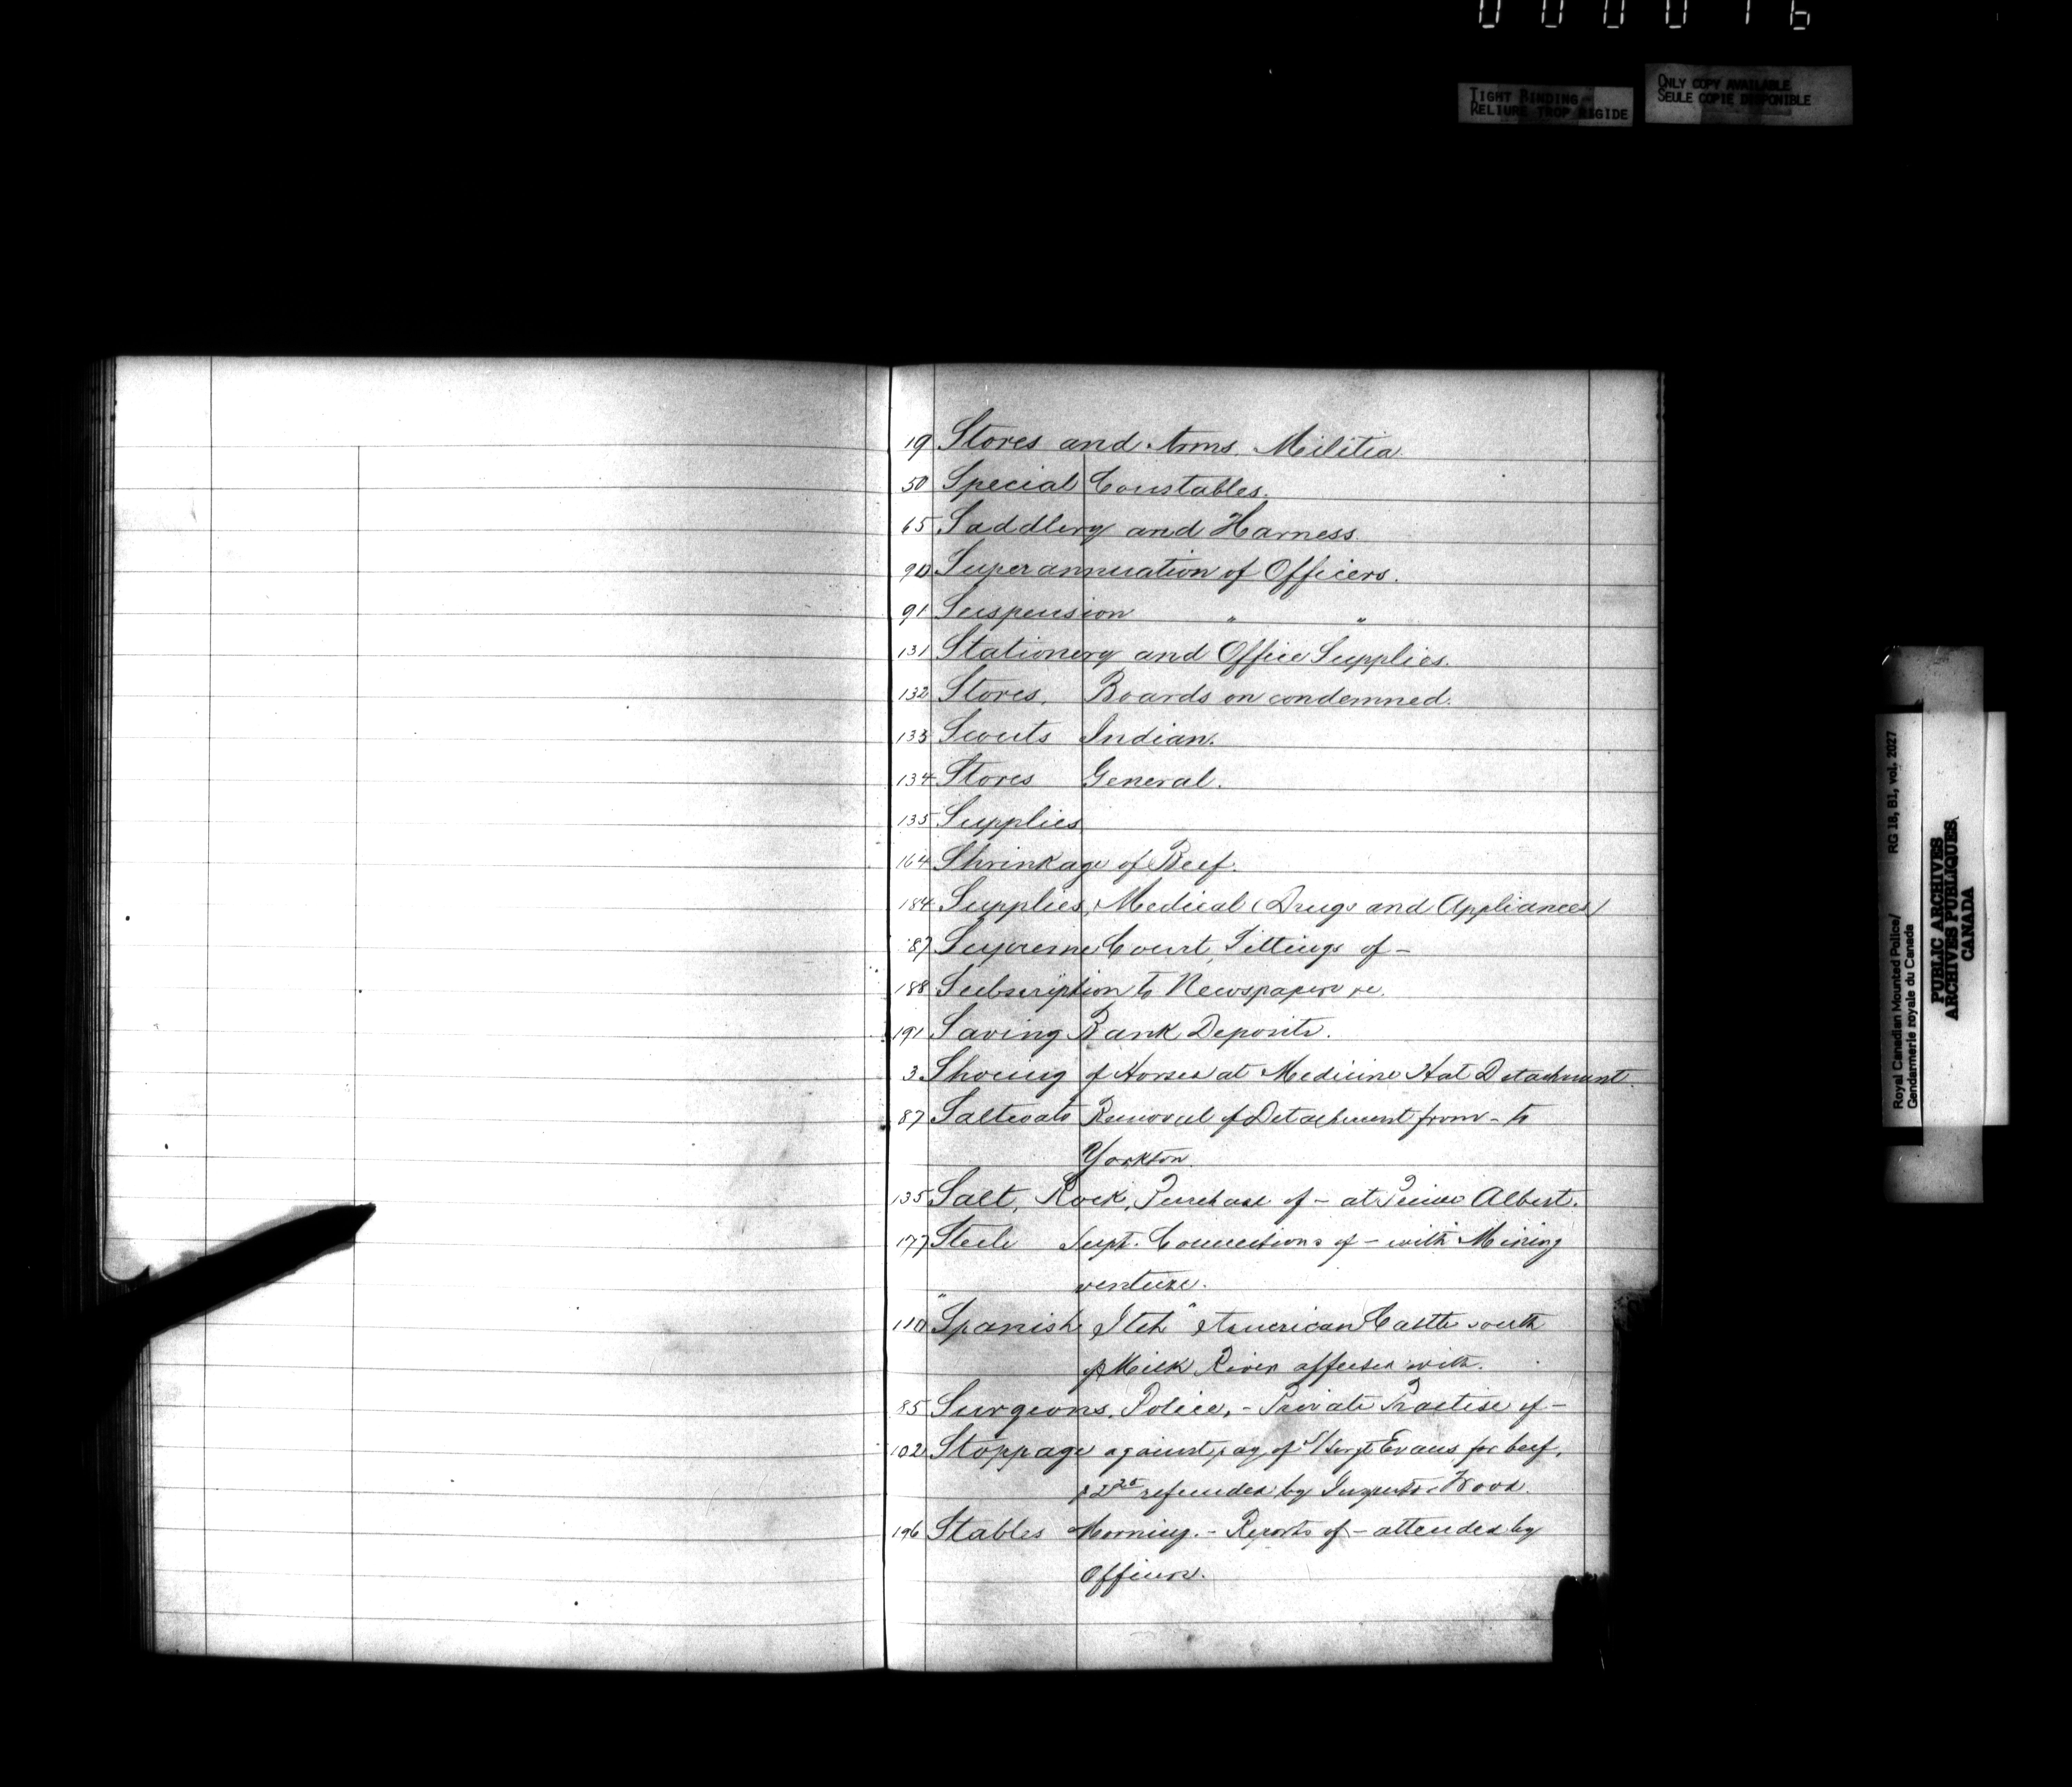 000016
TIGHT BINDING
RELIURE TROP RIGIDE
ONLY COPY AVAILABLE
SEULE COPIE DISPONIBLE
19 Stores and Arms. Militia.
50 Special Constables.
65 Saddlery and Harness.
90 Superannuation of Officers.
91 Suspension " "
131 Stationery and Office Supplies.
132 Stores. Boards on condemned.
133 Scouts Indian.
134 Stores General.
135 Supplies
164 Shrinkage of Beef.
184 Supplies, Medical (Drugs and Appliances)
187 Supreme Court, Sittings of -
188 Subscription to Newspapers &c.
191 Saving Bank Deposits.
3 Shoeing of Horses at Medicine Hat Detachment.
87 Saltcoats Removal of Detachment from - to
Yorkton.
135 Salt, Rock, Purchase of - at Prince Albert.
177 Steele Supt. Connections of - with Mining
venture.
110 "Spanish Itch" American Cattle south
of Milk River affected with.
85 Surgeons, Police, - Private Practise of -
102 Stoppage against pay of S/Sergt Evans for beef,
refunded by Inspector Wood.
196 Stables Morning. - Reports of - attended by
Officers.
Royal Canadian Mounted Police/
Gendarmerie royale du Canada
RG 18, B1, vol. 2027
PUBLIC ARCHIVES
ARCHIVES PUBLIQUES
CANADA